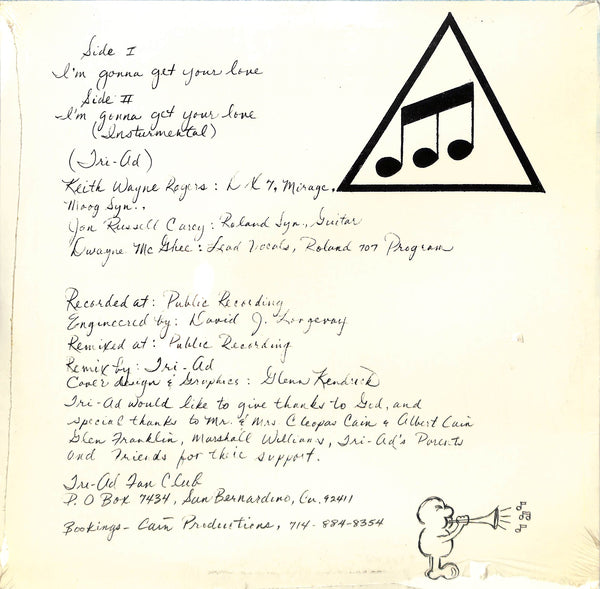 Side I
I'm gonna get your love
Side II
I'm gonna get your love
(Insturmental)
(Tri-Ad)
Keith Wayne Rogers: D X 7, Mirage,
Moog Syn.,
Jon Russell Carey: Roland Syn., Guitar
Dwayne McGhee: Lead Vocals, Roland 707 Program
Recorded at: Public Recording
Engineered by: David J. Longevay
Remixed at: Public Recording
Remix by: Tri-Ad
Cover design & Graphics: Glenn Kendrick
Tri-Ad would like to give thanks to God, and
special thanks to Mr. & Mrs Cleopas Cain & Albert Cain
Glen Franklin, Marshall Williams, Tri-Ad's Parents
and Friends for their support.
Tri-Ad Fan Club
P.O Box 7434, San Bernardino, Ca. 92411
Bookings- Cain Productions, 714-884-8354